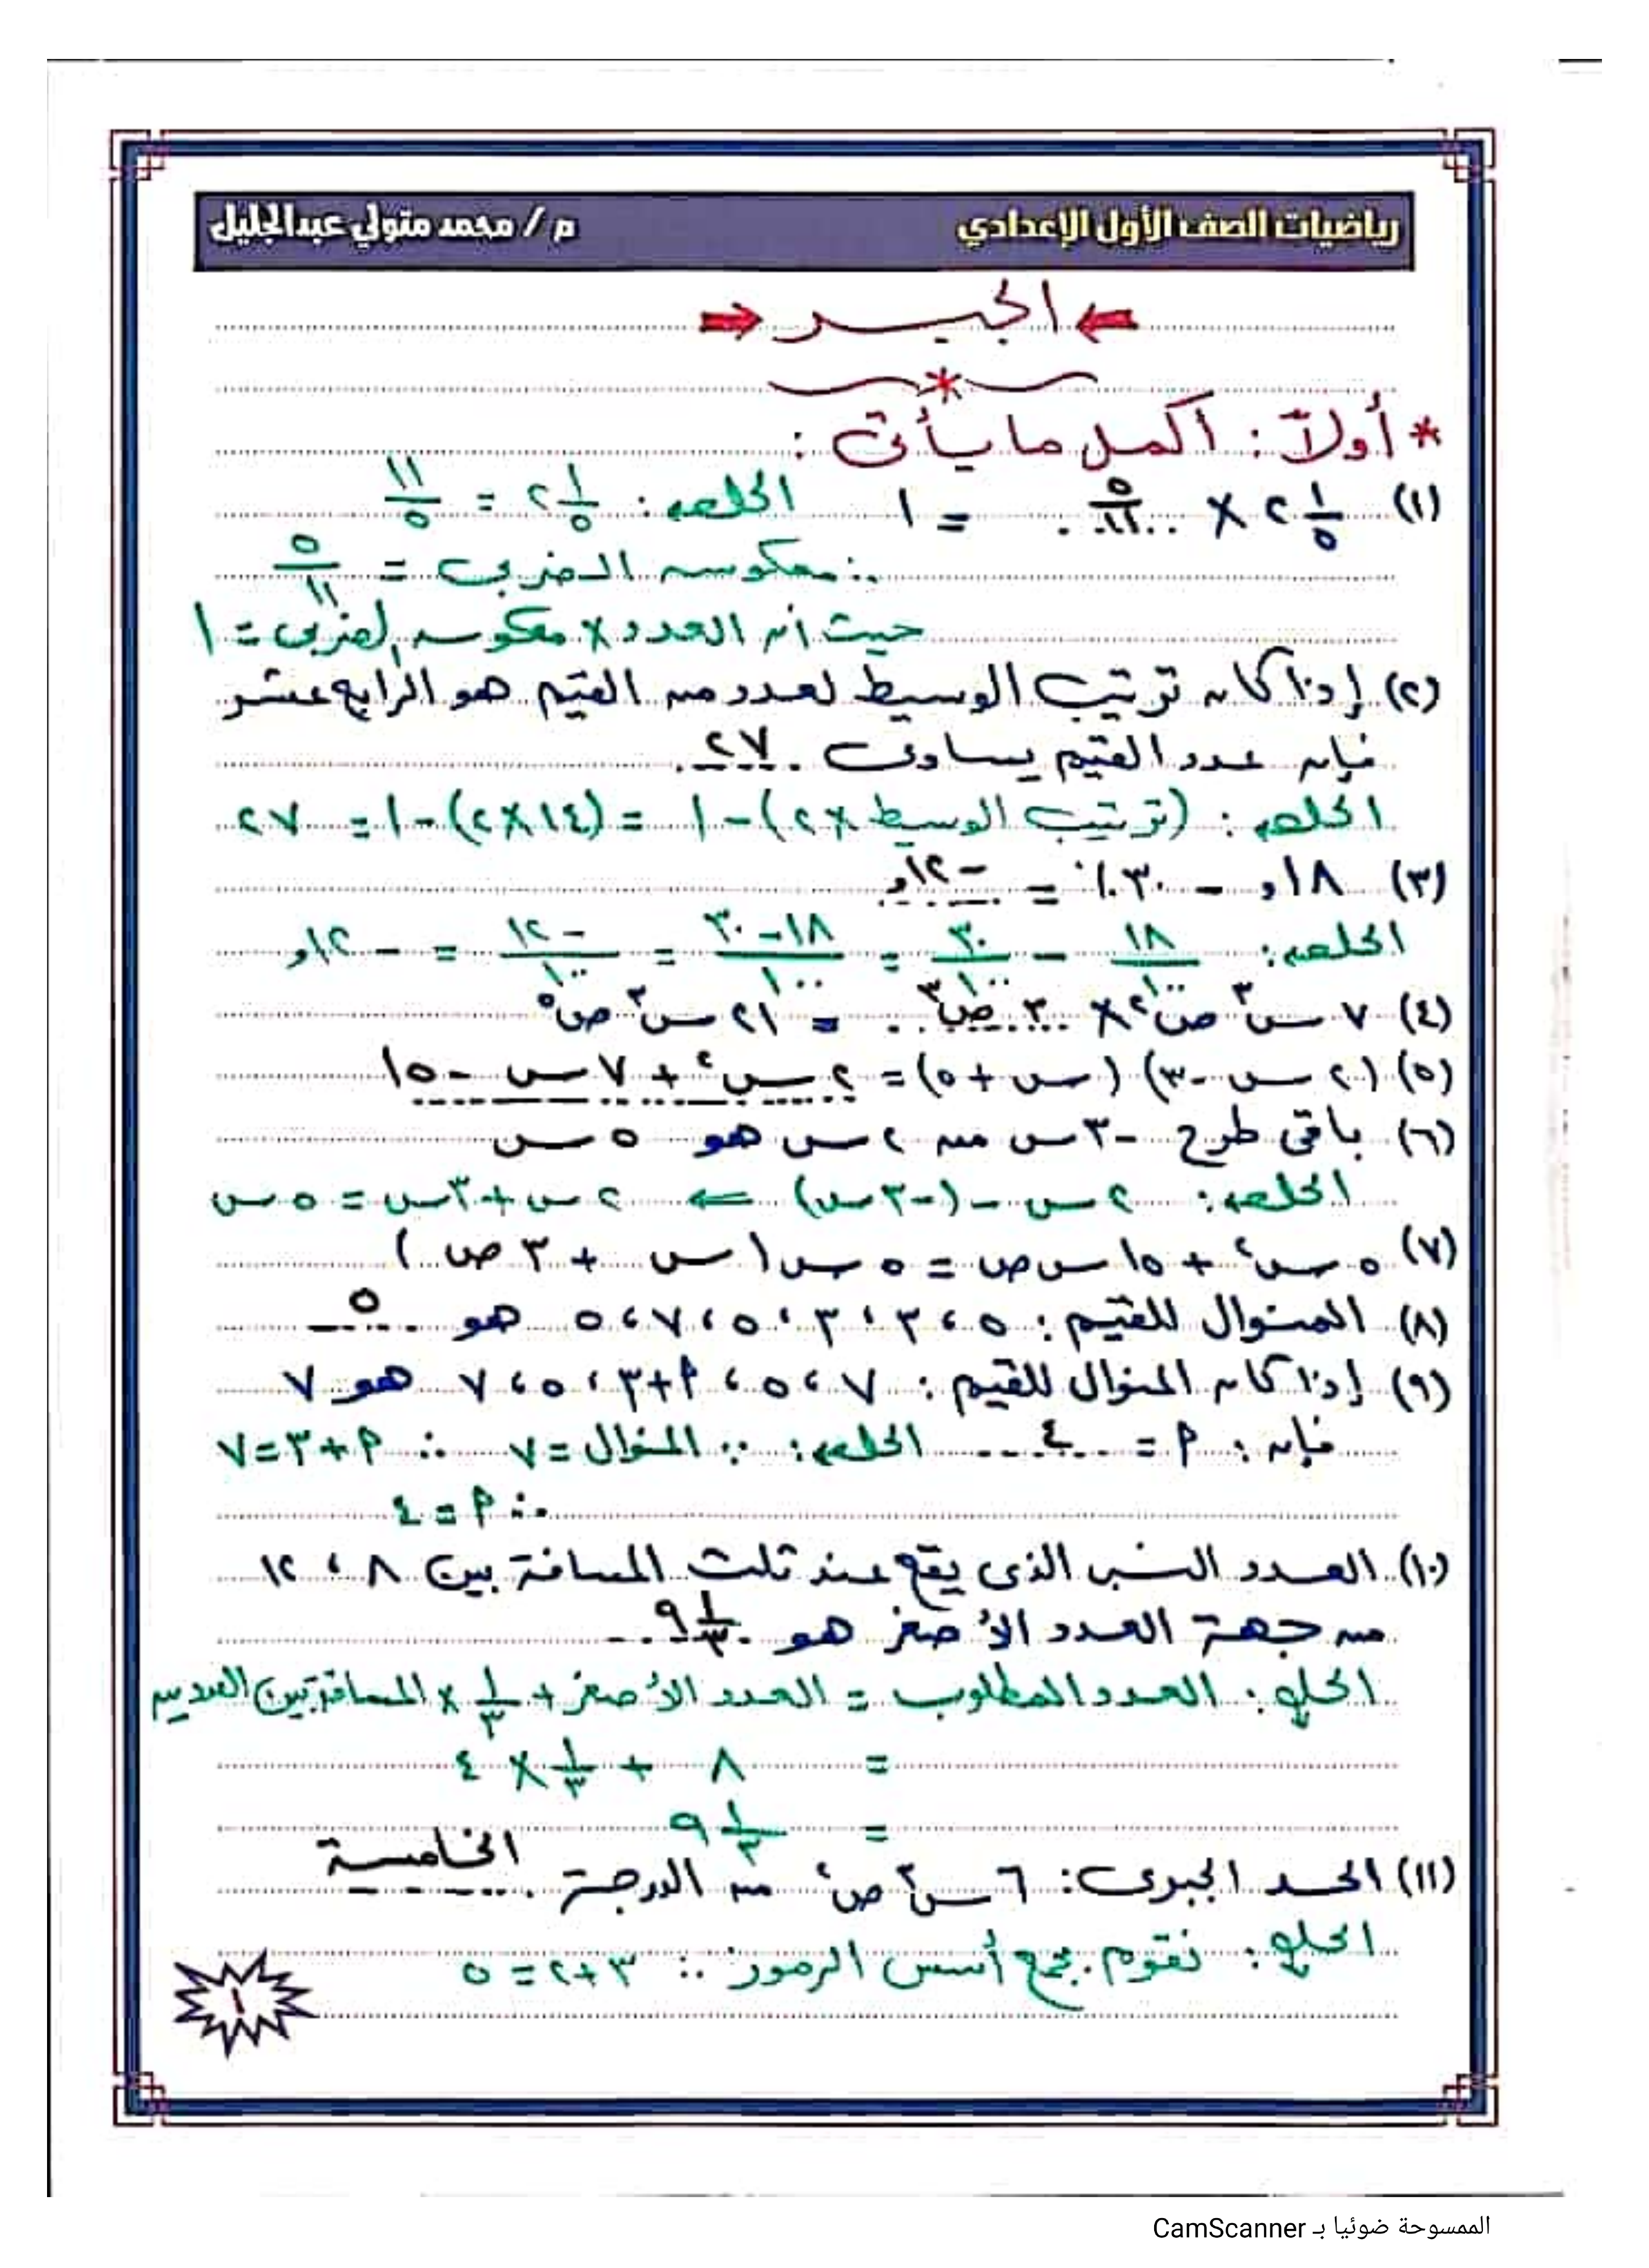 رياضيات الصف الأول الإعدادي
م / محمد متولي عبدالجليل
الجبر
* أولاً : أكمل ما يأتى :
(١) ٢ ١/٥ × ٥/١١ = ١ الحل : ٢ ١/٥ = ١١/٥
∴ معكوسه الضربى = ٥/١١
حيث أن العدد × معكوسه الضربى = ١
(٢) إذا كان ترتيب الوسيط لعدد من القيم هو الرابع عشر
فإن عدد القيم يساوى ٢٧
الحل : (ترتيب الوسيط × ٢) - ١ = (١٤ × ٢) - ١ = ٢٧
(٣) ١٨, - ٣٠٪ = - ١٢,
الحل : ١٨/١٠٠ - ٣٠/١٠٠ = ١٨-٣٠/١٠٠ = -١٢/١٠٠ = - ١٢,
(٤) ٧ س٣ ص٢ × ٣ ص٣ = ٢١ س٣ ص٥
(٥) (٢ س - ٣) (س + ٥) = ٢ س٢ + ٧ س - ١٥
(٦) باقى طرح - ٣ س من ٢ س هو ٥ س
الحل : ٢ س - (- ٣ س) ⇐ ٢ س + ٣ س = ٥ س
(٧) ٥ س٢ + ١٥ س ص = ٥ س (س + ٣ ص)
(٨) المنوال للقيم : ٥ ، ٣ ، ٣ ، ٥ ، ٧ ، ٥ هو ٥
(٩) إذا كان المنوال للقيم : ٧ ، ٥ ، م + ٣ ، ٥ ، ٧ هو ٧
فإن : م = ٤ الحل : ∵ المنوال = ٧ ∴ م + ٣ = ٧
∴ م = ٤
(١٠) العدد النسبى الذى يقع عند ثلث المسافة بين ٨ ، ١٢
من جهة العدد الأصغر هو ٩ ١/٣
الحل : العدد المطلوب = العدد الأصغر + ١/٣ × المسافة بين العددين
= ٨ + ١/٣ × ٤
= ٩ ١/٣
(١١) الحد الجبرى : ٦ س٣ ص٢ من الدرجة الخامسة
الحل : نقوم بجمع أسس الرموز : ٣ + ٢ = ٥
١
الممسوحة ضوئيا بـ CamScanner